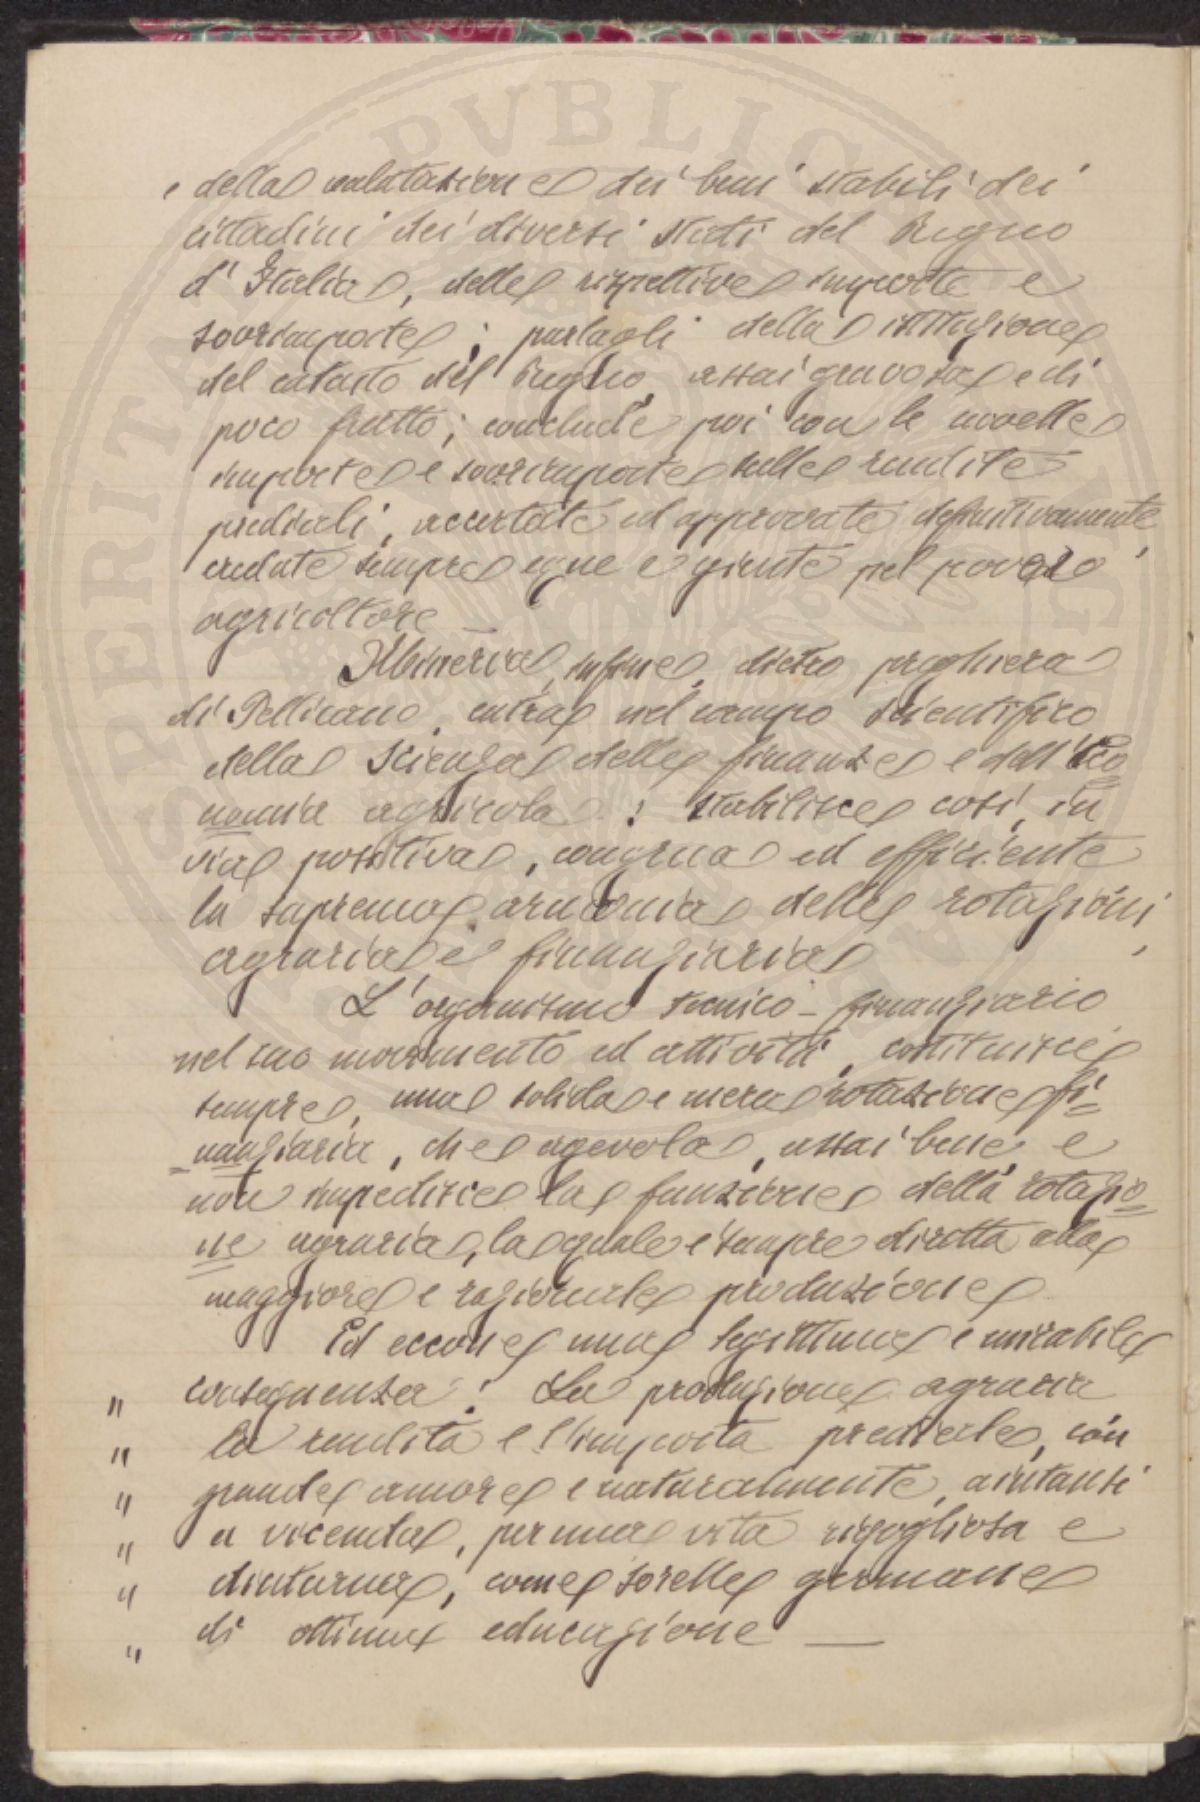 e della valutazione dei beni stabili dei
cittadini dei diversi Stati del Regno
d'Italia, delle rispettive imposte e
sovrimposte; parlagli della istituzione
del catasto del Regno, assai gravosa e di
poco frutto; conclude poi con le novelle
imposte e sovrimposte sulle rendite
prediali, accertate ed approvate definitivamente,
credute sempre eque e giuste pel povero
agricoltore
Minerva, infine, dietro preghiera
di Pellicano, entra nel campo scientifico
della Scienza delle finanze e dell'Eco
nomia agricola: stabilisce così, in
via positiva, congrua ed efficiente
la suprema armonia delle rotazioni,
agraria e finanziaria
L'organismo tecnico-finanziario
nel suo movimento ed attività, costituisce
sempre, una solida e mera rotazione fi=
=nanziaria, che agevola, assai bene e
non impedisce la funzione della rotazio
ne agraria, la quale è sempre diretta alla
maggiore e razionale produzione
Ed eccone una legittima e mirabile
" conseguenza: La produzione agraria
" la rendita e l'imposta prediale, con
" grande amore e naturalmente, aiutansi
" a vicenda, per una vita rigogliosa e
" diuturna, come sorelle germane
" di ottima educazione —
PVBLICA